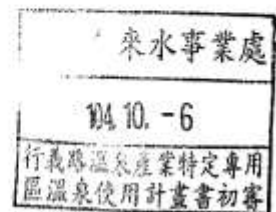 來水事業處
104.10.-6
行義路溫泉產業特定專用
區溫泉使用計畫書初審